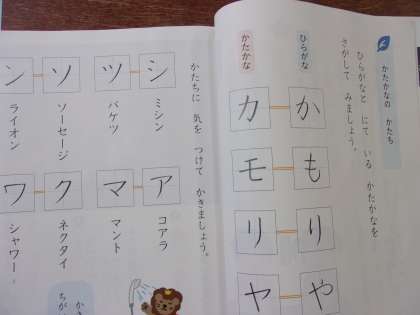 かたかなの かたち
ひらがなと にて いる かたかなを
さがして みましょう。
ひらがな
かたかな
か カ
も モ
り リ
や ヤ
かたちに 気を つけて かきましょう。
シ ツ
ミシン
バケツ
ソ ン
ソーセージ
ライオン
ア マ
コアラ
マント
ク ワ
ネクタイ
シャワー